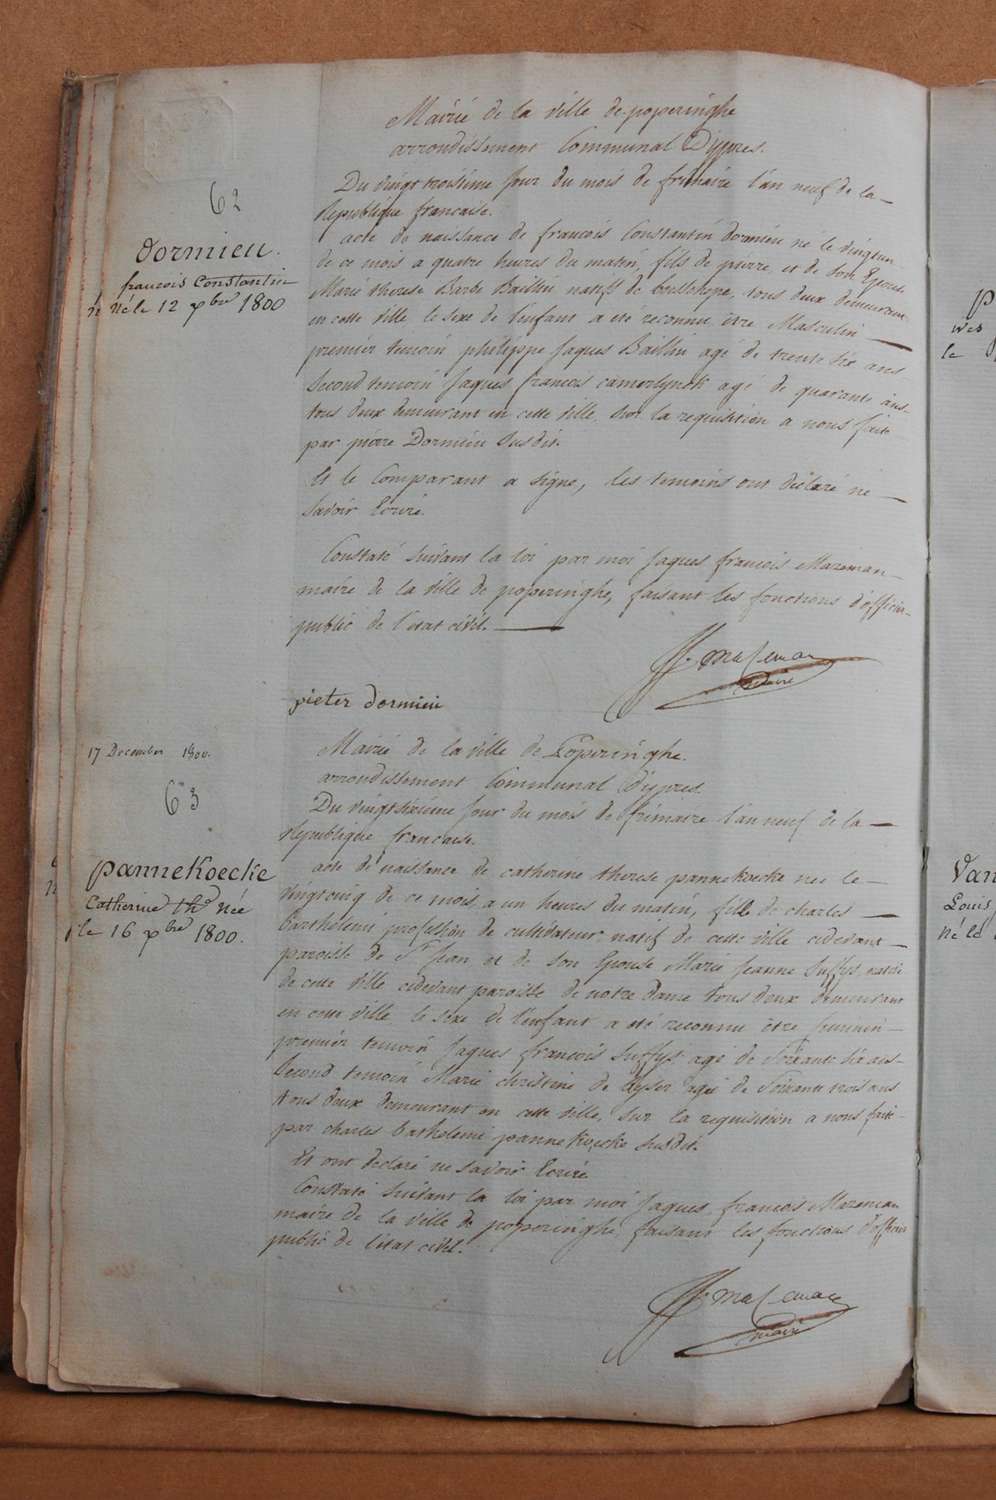 62
Dormieu.
francois Constantin
Né le 12 xbre 1800
Mairie de la ville de poperinghe
arrondissement Communal D'ypres.
Du vingt troisieme jour du mois de frimaire l'an neuf de la
Republique francaise.
acte de naissance de francois Constantin dormieu né le vingtun
de ce mois a quatre heures du matin, fils de pierre et de son Epouse
Marie therese Barbe Baillin natifs de tous deux demeurant
en cette ville, le sexe de l'enfant a ete reconnu être Masculin
premier temoin philippe Jaques Baillin agé de trente six ans
Second temoin Jaques francois camerlynck agé de quarante ans
tous deux demeurant en cette ville, sur la requisition a nous faite
par pierre Dormieu susdit.
Et le Comparant a signe, les temoins ont déclaré ne
savoir Ecrire.
Constaté suivant la loi par moi Jaques francois Mazeman
maire de la ville de poperinghe, faisant les fonctions d'officier
public de l'etat civil.
J.f. Mazeman
maire
pieter dormieu
17 December 1800.
63
pannekoecke
Catherine the Née
le 16 xbre 1800.
Mairie de la ville de Poperinghe.
arrondissement Communal D'ypres.
Du vingtsixieme jour du mois de frimaire l'an neuf de la
Republique francaise.
acte de naissance de catherine therese pannekoecke née le
vingtcinq de ce mois a un heures du matin, fille de charles
Barthelemi profession de cultivateur natif de cette ville cidevant
paroisse de St Jean et de son Epouse Marie Jeanne Suffys native
de cette ville cidevant paroisse de notre Dame tous deux demeurant
en cette ville le sexe de l'enfant a été reconnu être feminin
premier temoin Jaques francois Suffys agé de soixante six ans
Second temoin Marie christine de Cyser agée de soixante trois ans
tous deux demeurant en cette ville, sur la requisition a nous faite
par charles barthelemi pannekoecke susdit.
Et ont declaré ne savoir Ecrire
Constaté suivant la loi par moi Jaques francois Mazeman
maire de la ville de poperinghe, faisant les fonctions d'officier
public de l'etat civil.
J.f. Mazeman
maire
Van
Louis
Né le